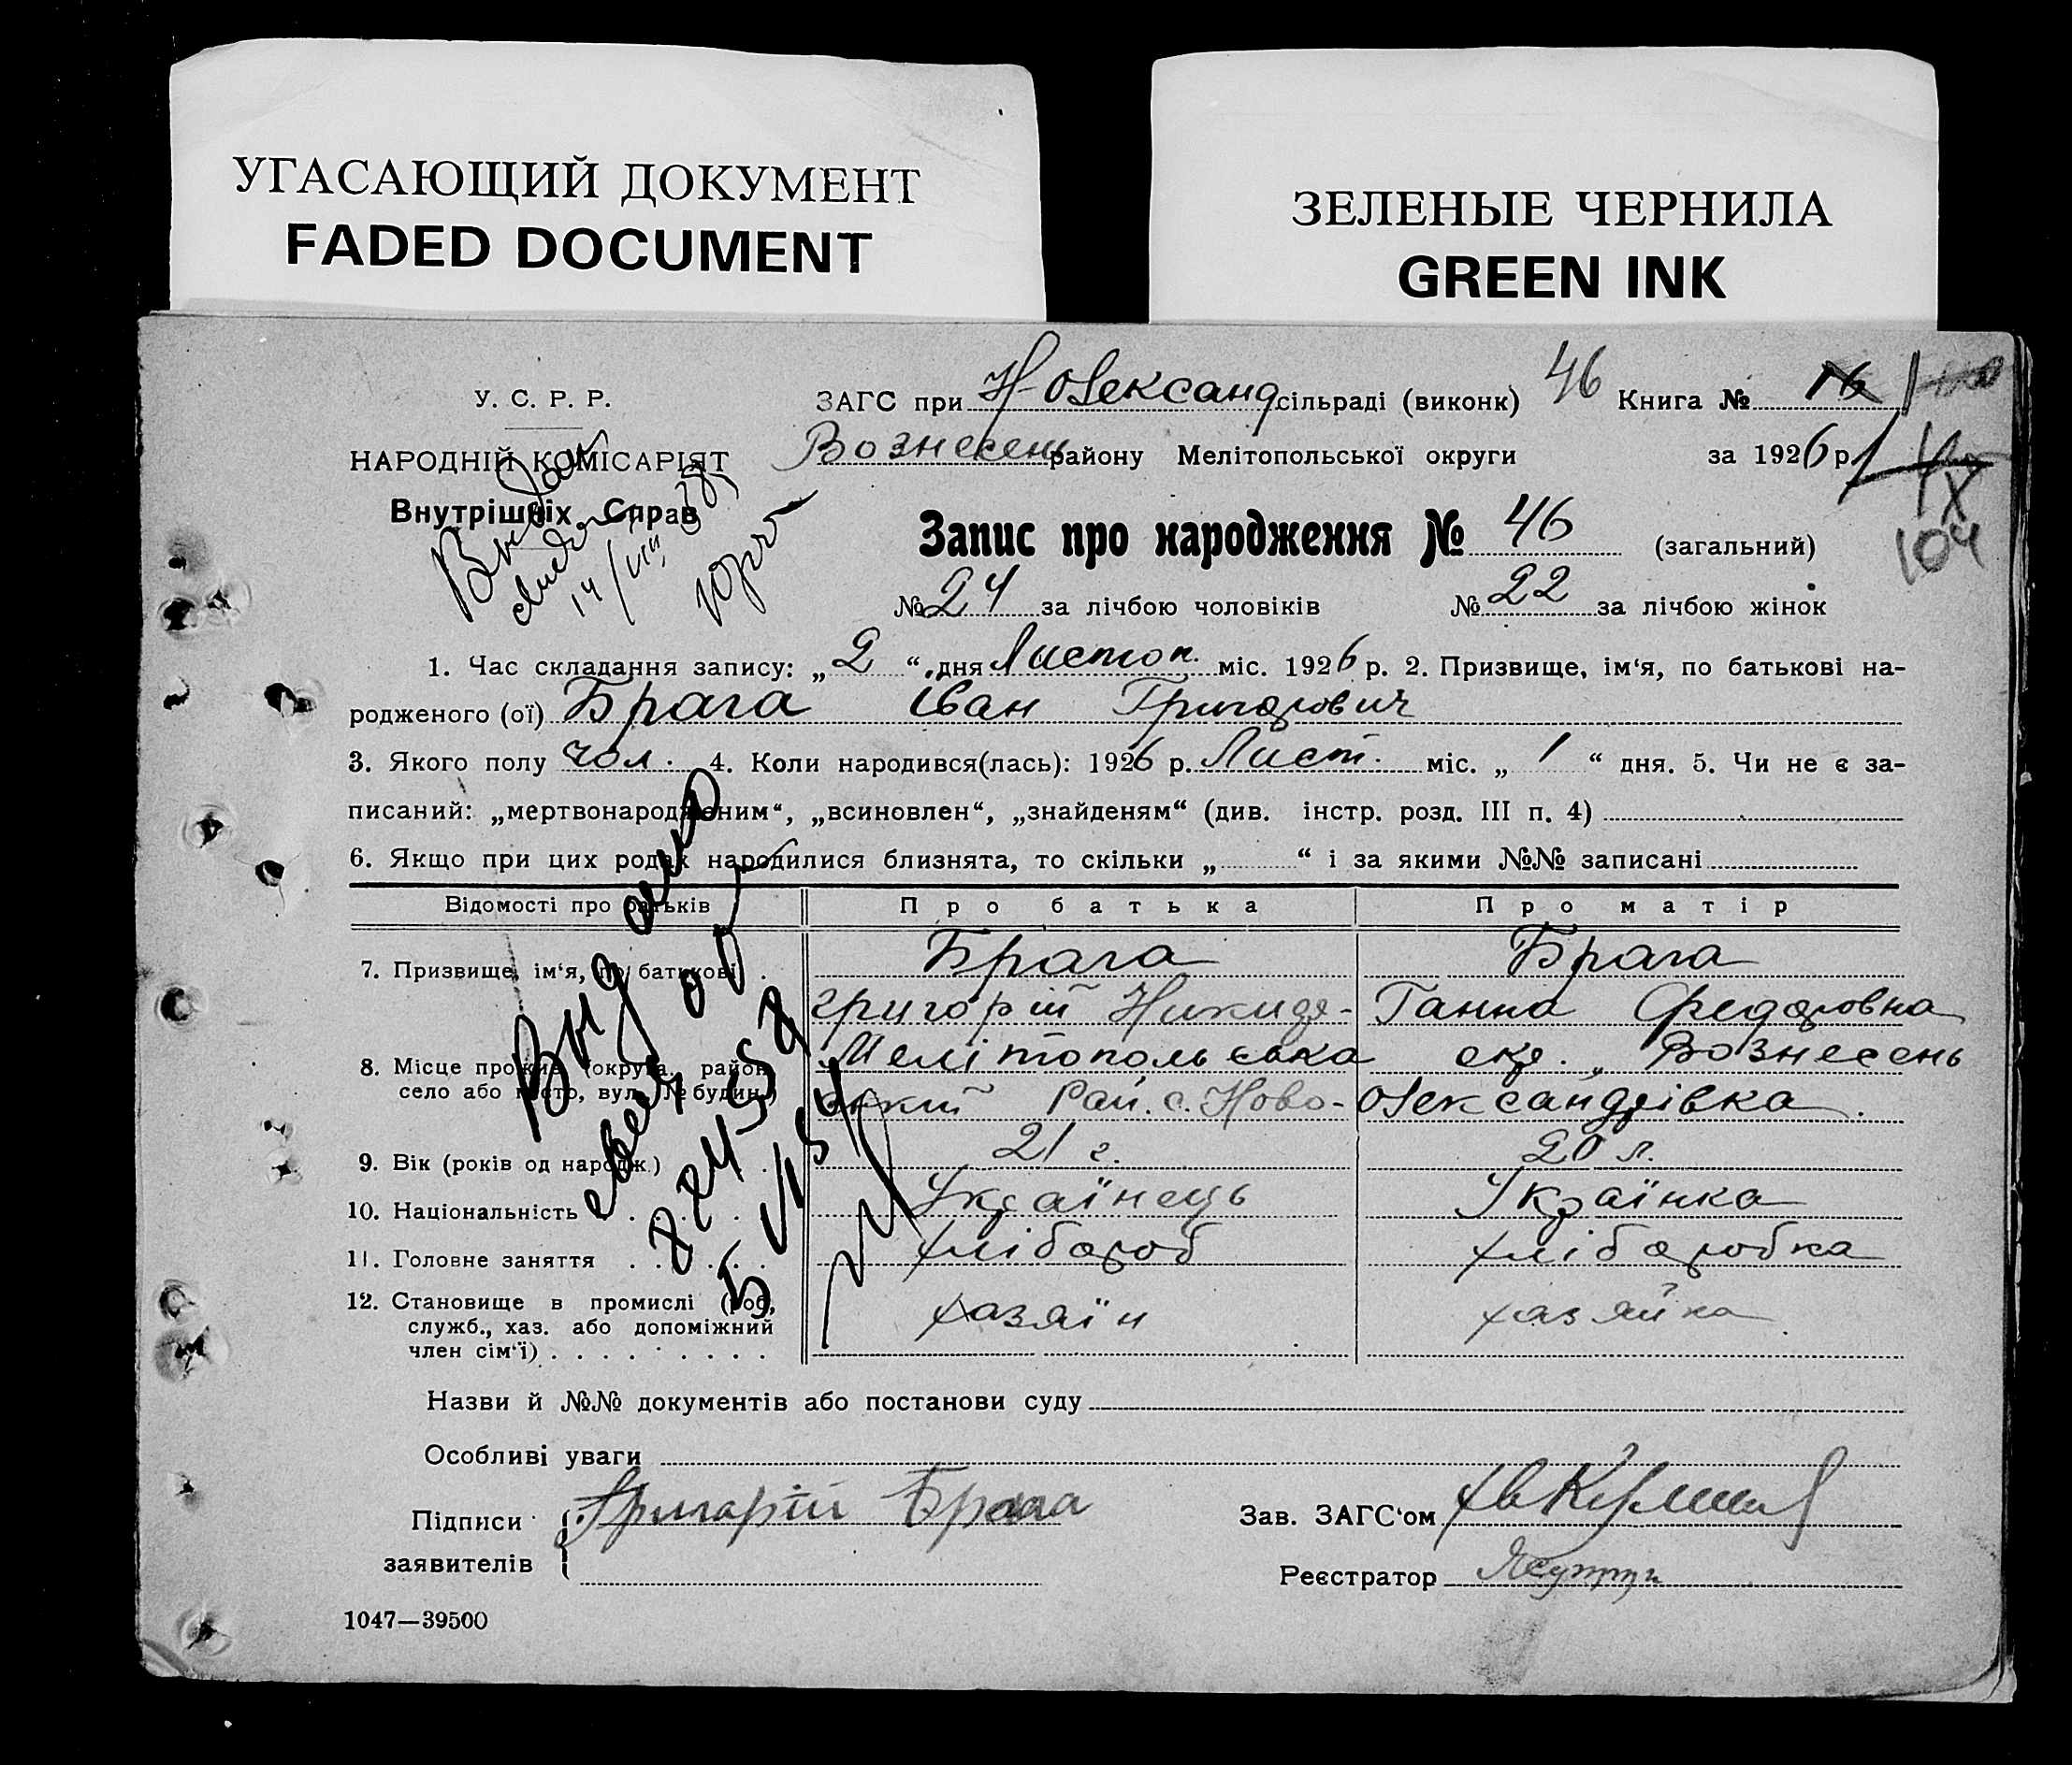 УГАСАЮЩИЙ ДОКУМЕНТ
FADED DOCUMENT
ЗЕЛЕНЫЕ ЧЕРНИЛА
GREEN INK
У. С. Р. Р.
НАРОДНІЙ КОМІСАРІЯТ
Внутрішніх Справ
ЗАГС при Н-Олександ сільраді (виконк) 46 Книга №
Вознесень району Мелітопольської округи за 1926 р.
Запис про народження № 46 (загальний)
№ 24 за лічбою чоловіків № 22 за лічбою жінок
104
1. Час складання запису: „2“ дня Листоп. міс. 1926 р. 2. Призвище, ім‘я, по батькові на-
родженого (ої) Брага Іван Григорович
3. Якого полу чол. 4. Коли народився(лась): 1926 р. Лист. міс. „1“ дня. 5. Чи не є за-
писаний: „мертвонародженим“, „всиновлен“, „знайденям“ (див. інстр. розд. III п. 4)
6. Якщо при цих родах народилися близнята, то скільки „ “ і за якими №№ записані
Відомості про батьків Про батька Про матір
7. Призвище, ім‘я, по батькові Брага Брага
Григорій Никидо- Ганна Федоровна
8. Місце прожив. (округа, район, Мелітопольська окр. Вознесень
село або місто, вул. № будин.) ський Рай. с. Ново- Олександрівка.
9. Вік (років од народж.) 21 г. 20 л.
10. Національність Українець Українка
11. Головне заняття хлібороб хліборобка
12. Становище в промислі (роб, хазяїн хазяйка
служб., хаз. або допоміжний
член сім‘ї)
Видано
Назви й №№ документів або постанови суду
Особливі уваги
Підписи Григорій Брага
заявителів
Зав. ЗАГС‘ом
Реєстратор
1047—39500